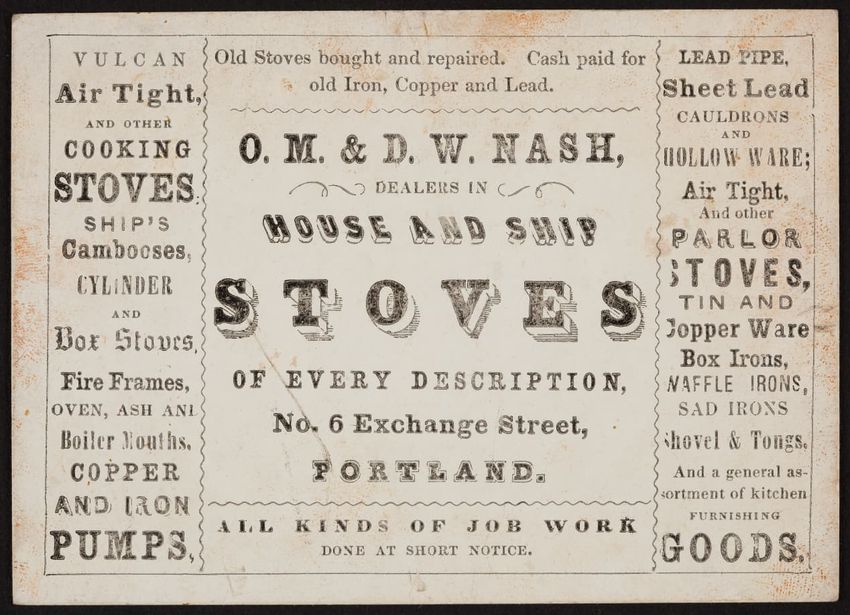 VULCAN
Air Tight,
AND OTHER
COOKING
STOVES.
SHIP'S
Cambooses,
CYLINDER
AND
Box Stoves,
Fire Frames,
OVEN, ASH AND
Boiler Mouths,
COPPER
AND IRON
PUMPS,
Old Stoves bought and repaired. Cash paid for
old Iron, Copper and Lead.
O. M. & D. W. NASH,
DEALERS IN
HOUSE AND SHIP
STOVES
OF EVERY DESCRIPTION,
No. 6 Exchange Street,
PORTLAND.
ALL KINDS OF JOB WORK
DONE AT SHORT NOTICE.
LEAD PIPE,
Sheet Lead
CAULDRONS
AND
HOLLOW WARE;
Air Tight,
And other
PARLOR
STOVES,
TIN AND
Copper Ware
Box Irons,
WAFFLE IRONS,
SAD IRONS
Shovel & Tongs,
And a general as-
sortment of kitchen
FURNISHING
GOODS.